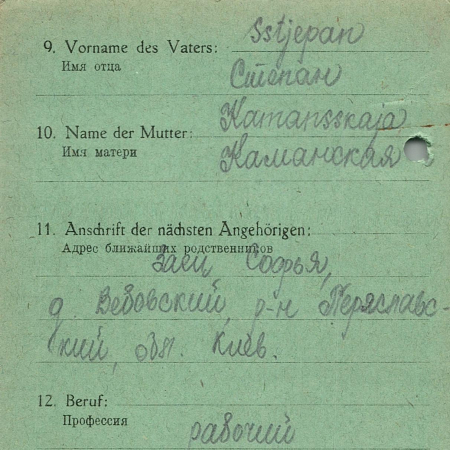 9. Vorname des Vaters: Sstjepan
Имя отца Степан
10. Name der Mutter: Kamansskaja
Имя матери Каманская
11. Anschrift der nächsten Angehörigen:
Адрес ближайших родственников
Заец Софья,
д Вебовский, р-н Перяславс-
кий, обл. Киев.
12. Beruf:
Профессия
рабочий